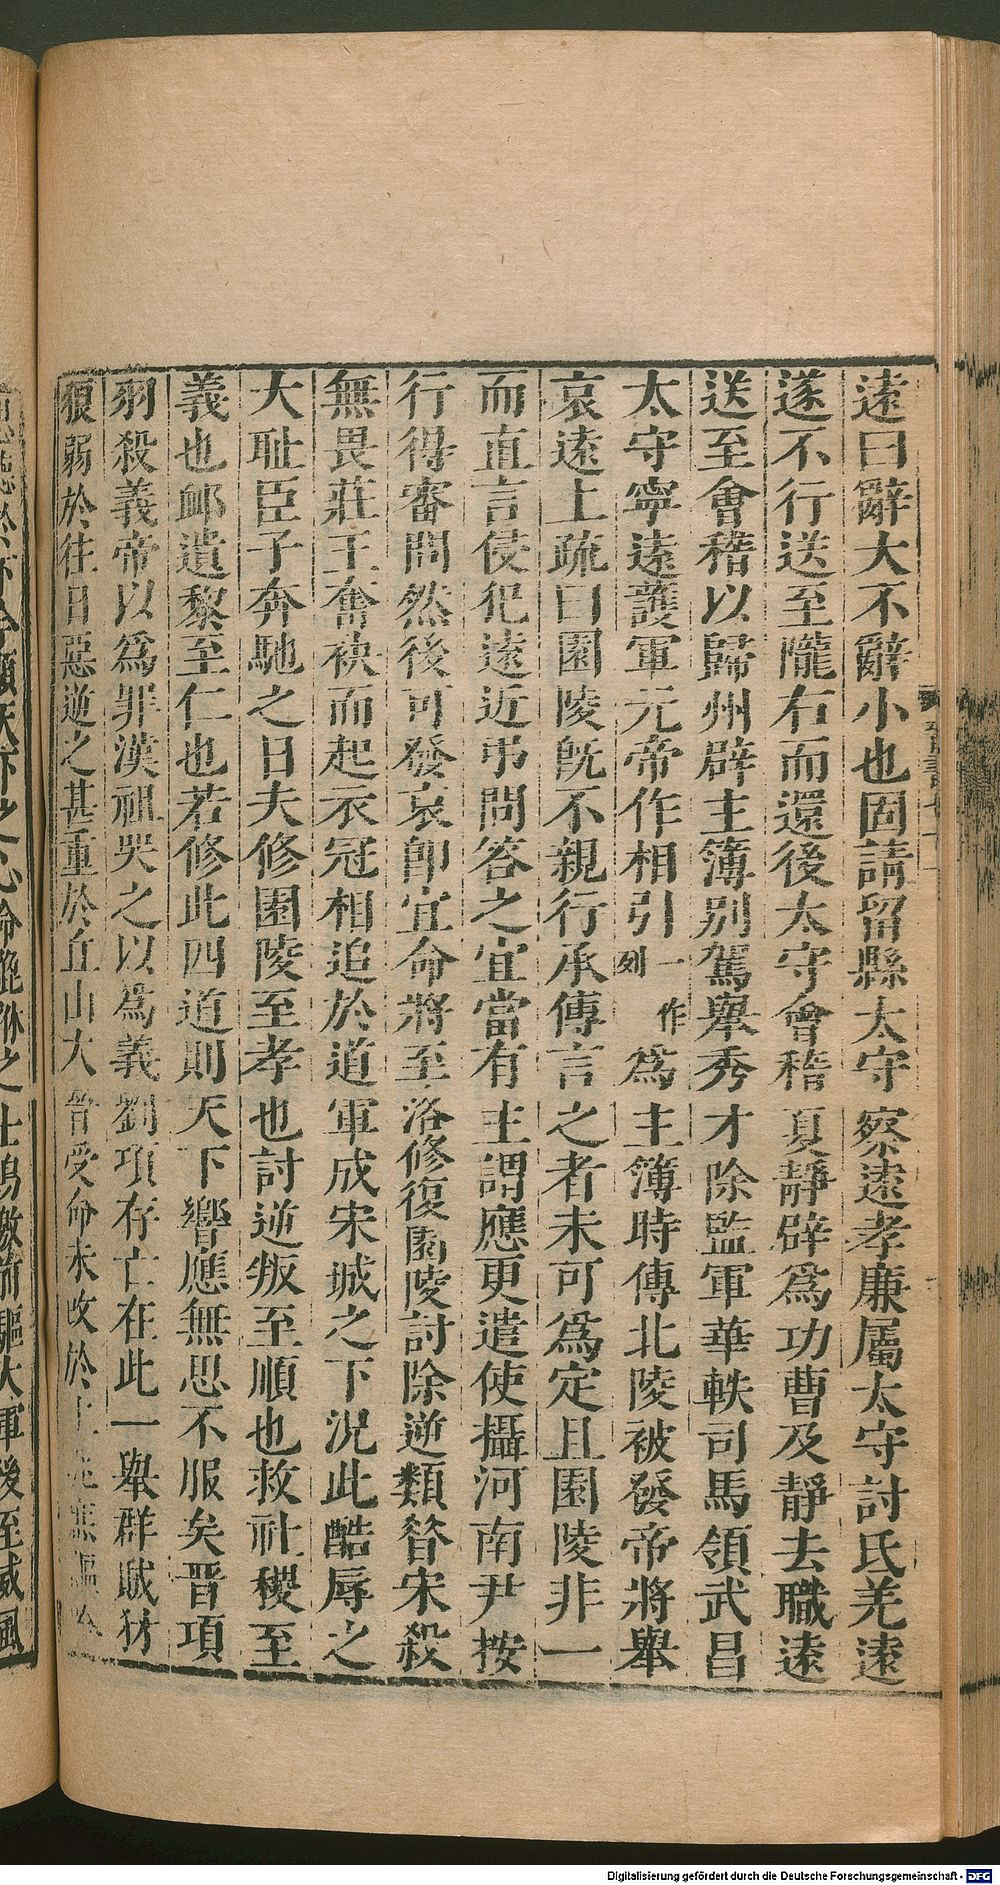 遠曰辭大不辭小也固請留縣太守察遠孝廉屬太守討氐羌遠
遂不行送至隴右而還後太守會稽夏靜辟爲功曹及靜去職遠
送至會稽以歸州辟主簿別駕舉秀才除監軍華軼司馬領武昌
太守寧遠護軍元帝作相引一作列爲主簿時傳北陵被發帝將舉
哀遠上疏曰園陵旣不親行承傳言之者未可爲定且園陵非一
而直言侵犯遠近弔問答之宜當有主謂應更遣使攝河南尹按
行得審問然後可發哀卽宜命將至洛修復園陵討除逆類昝宋殺
無畏莊王奮袂而起衣冠相追於道軍成宋城之下況此酷辱之
大耻臣子奔馳之日夫修園陵至孝也討逆叛至順也救社稷至
義也卹遺黎至仁也若修此四道則天下響應無思不服矣晋項
羽殺義帝以爲罪漢祖哭之以爲義劉項存亡在此一舉群賊豺
狼弱於往日惡逆之甚重於丘山大晉受命未改於上
下之心命
之士鳴檄前驅大軍後至威風
Digitalisierung gefördert durch die Deutsche Forschungsgemeinschaft - DFG